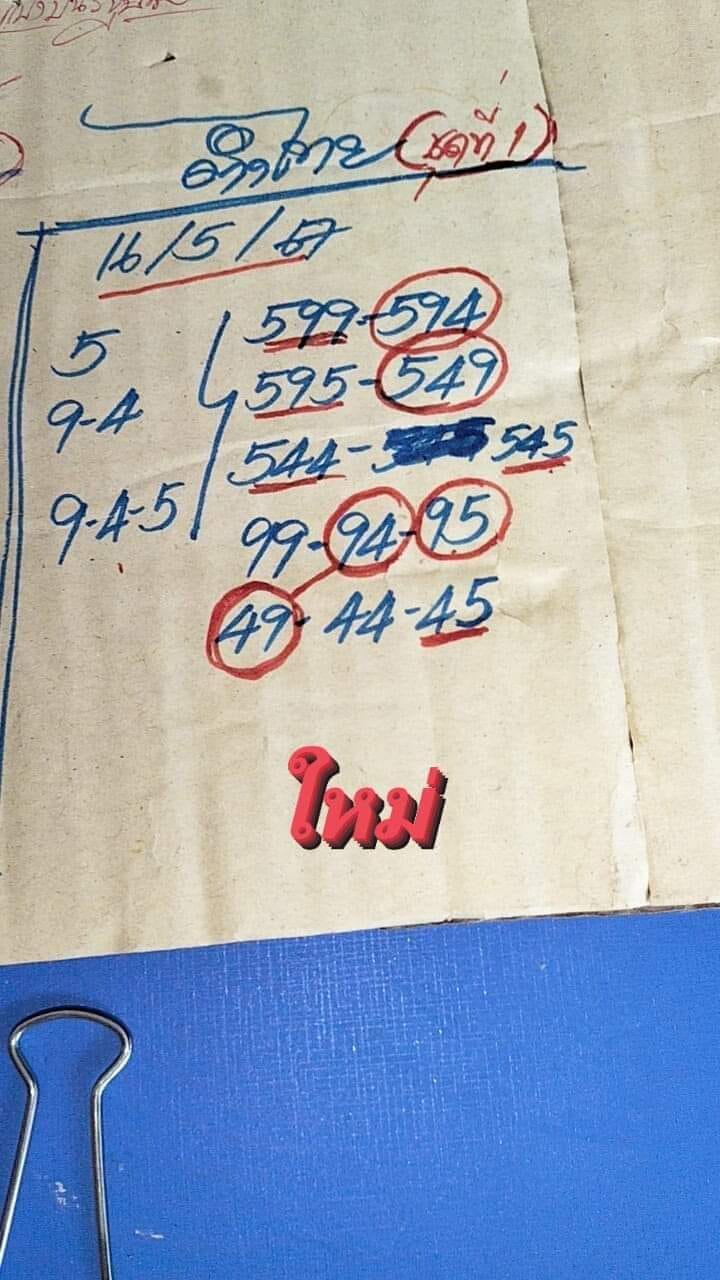 (ชุดที่ 1)
16/5/67
5
9-4
9-4-5
599-594
595-549
544- 545
99-94-95
49-44-45
ใหม่